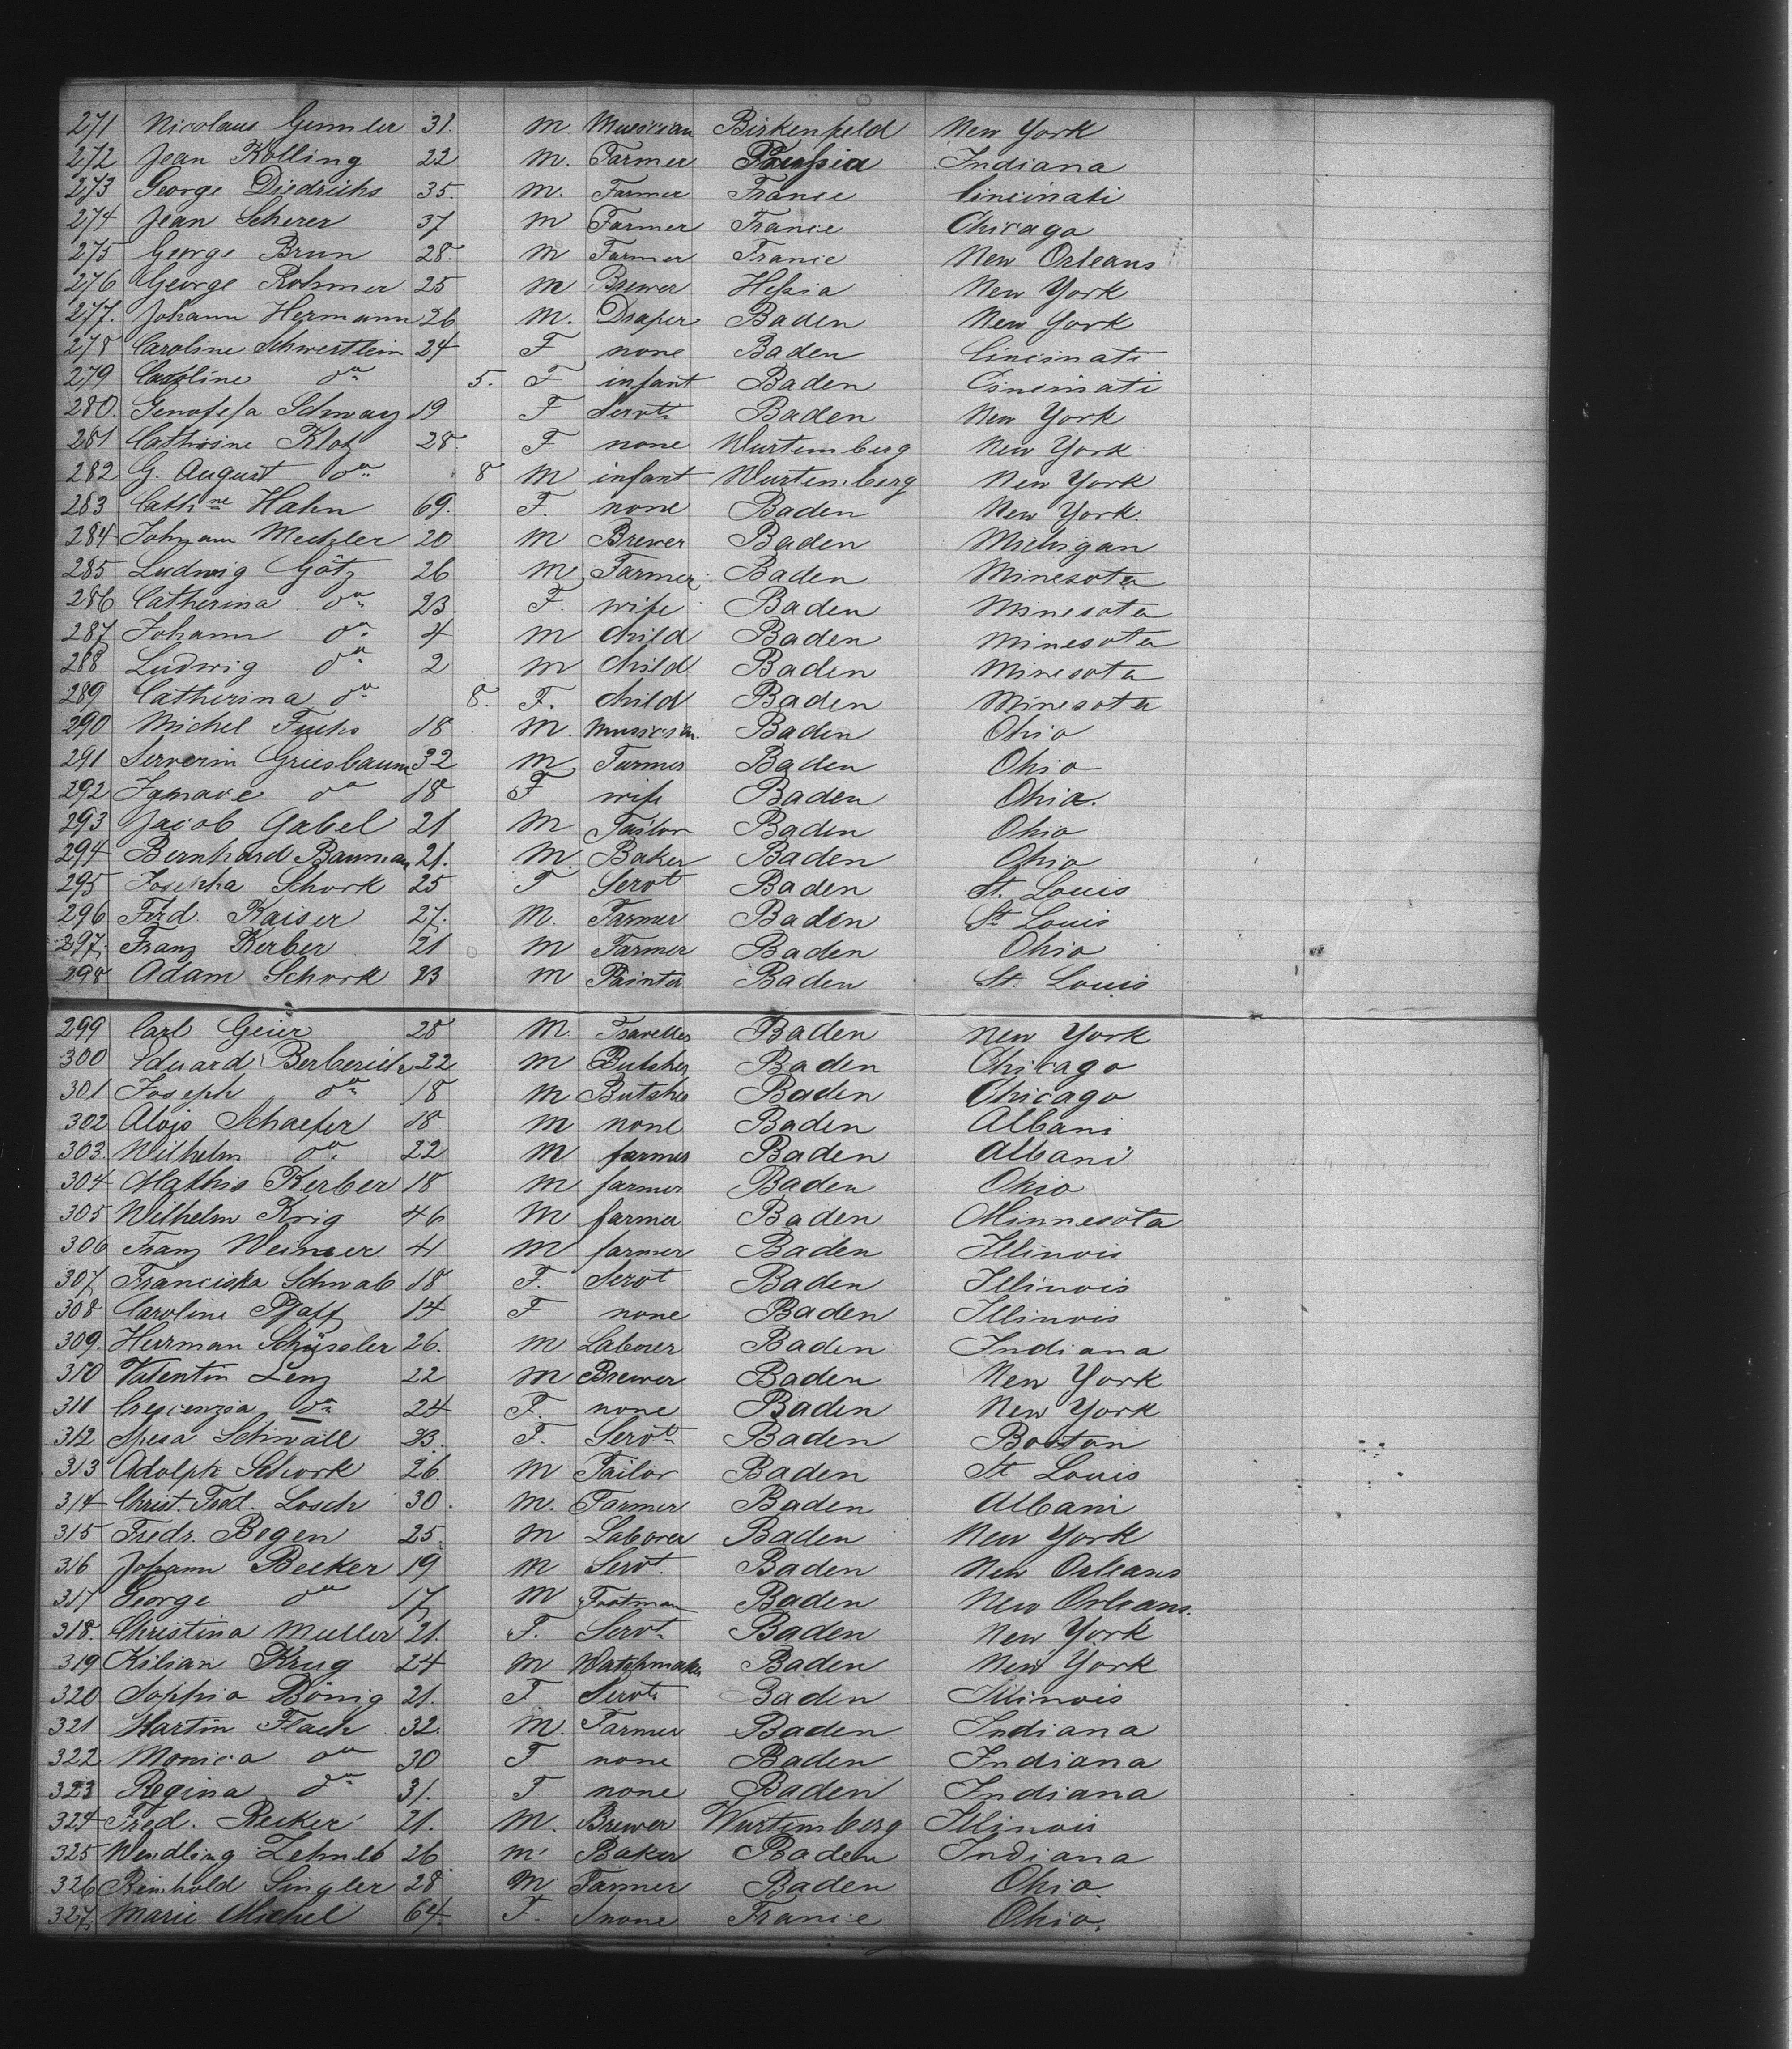 271 Nicolaus Gemmler 31. M Musician Birkenfeld New York
272 Jean Kolling 22 M. Farmer Prussia Indiana
273 George Diedrichs 35. M. Farmer France Cincinati
274 Jean Scherer 37 M Farmer France Chicago
275 George Brun 28. M Farmer France New Orleans
276 George Rohmer 25 M Brewer Hessia New York
277. Johann Hermann 26 M. Draper Baden New York
278 Caroline Schwertlein 24 F none Baden Cincinati
279 Caroline do 5. F infant Baden Cincinati
280. Genofefa Schwarz 19 F Servt. Baden New York
281 Cathrine Klotz 28. F none Wurtemberg New York
282 G. August do 8 M infant Wurtemberg New York
283 Cathne Hahn 69. F. none Baden New York.
284 Johann Metzler 20 M Brewer Baden Michigan
285 Ludwig Götz 26 M Farmer Baden Minesota
286 Catherina do 23. F. wife Baden Minesota
287 Johann do 4 M child Baden Minesota
288 Ludwig do 2 M child Baden Minesota
289 Catherina do 8. F. child Baden Minesota
290 Michel Fuchs 18 M. Musician Baden Ohio
291 Serverin Griesbaum 32 M Farmer Baden Ohio
292 do 18 F wife Baden Ohio.
293 Jacob Gabel 21 M Tailor Baden Ohio
294 Bernhard Bauman 21. M. Baker Baden Ohio
295 Josepha Schork 25 F Servt Baden St. Louis
296 Ferd. Kaiser 27. M Farmer Baden St Louis
297. Franz Kerber 21 M Farmer Baden Ohio
298 Adam Schork 23 M Painter Baden St. Louis
299 Carl Geier 28 M. Traveller Baden New York
300 Eduard Berberich 22 M Butsher Baden Chicago
301 Joseph do 18 M Butsher Baden Chicago
302 Alojs Schaefer 18 M none Baden Albani
303. Wilhelm do 22 M farmer Baden Albani
304 Mathis Kerber 18 M farmer Baden Ohio
305 Wilhelm Krig 46 M farmer Baden Minnesota
306 Franz Weimer 41 M farmer Baden Illinois
307. Franciska Schwab 18 F. Servt Baden Illinois
308 Caroline Pfaff 14 F none Baden Illinois
309. Herrman Schüssler 26. M Laborer Baden Indiana
310 Valentin Lenz 22 M Brewer Baden New York
311 Crescenzia do 24 F. none Baden New York
312 Schwall 23. F. Servt. Baden Boston
313 Adolph Schork 26. M Tailor Baden St Louis
314 Christ. Fred. Losch 30. M. Farmer Baden Albani
315 Fredr. Begen 25. M Laborer Baden New York
316 Johann Becker 19 M Servt. Baden New Orleans
317 George do 17. M Footman Baden New Orleans.
318. Christina Muller 21. F. Servt. Baden New York
319 Kilian Krug 24 M Watchmaker Baden New York
320 Sophia Bönig 21. F Servt. Baden Illinois
321 Martin Flach 32. M. Farmer Baden Indiana
322 Monica do 30 F none Baden Indiana
323 Regina do 31. F none Baden Indiana
324 Fred. Recker 21. M. Brewer Wurtemberg Illinois
325 Wendling 26 M. Baker Baden Indiana
326 Reinhold Singler 28 M Farmer Baden Ohio.
327. Marie Michel 64. F. none France Ohio.